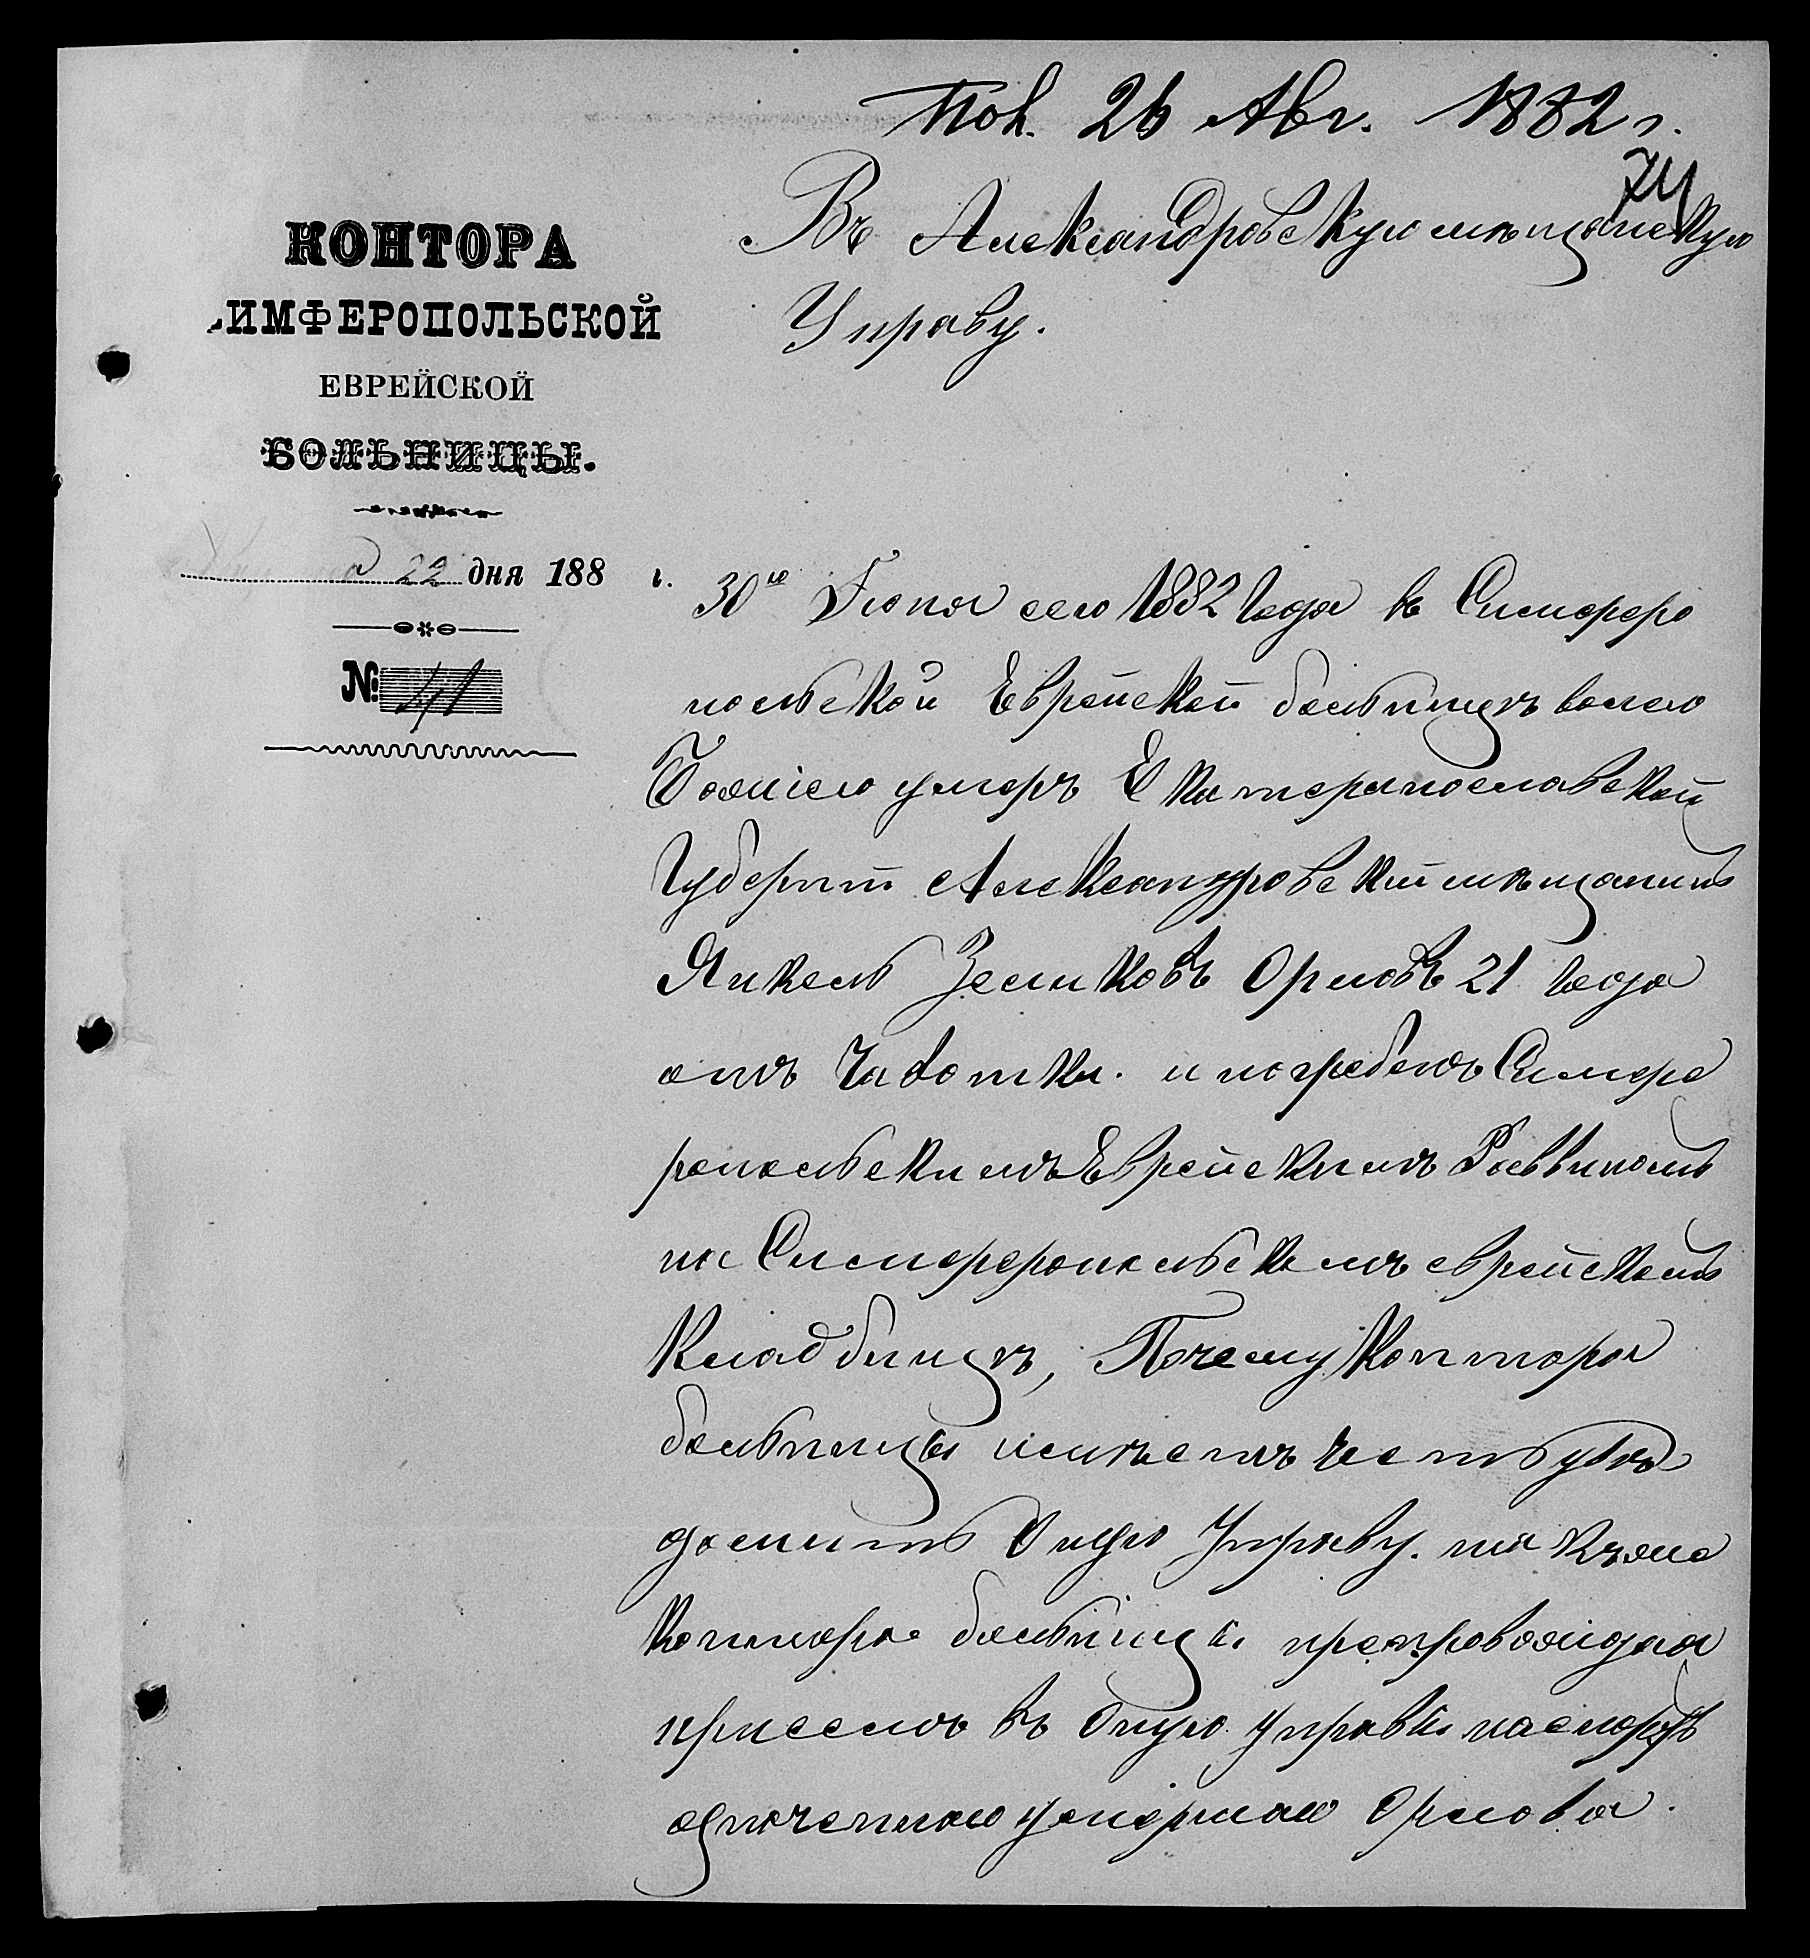 Пол. 26 Авг. 1882 г.
74
Въ Александровскую мѣщанскую
Управу.
КОНТОРА
СИМФЕРОПОЛЬСКОЙ
ЕВРЕЙСКОЙ
БОЛЬНИЦЫ.
22 дня 188 г.
№ 41
30го Іюня сего 1882 года въ Симферо
польской Еврейской больницѣ волею
Божіею умеръ Екатеринославской
Губерніи Александровскій мѣщанинъ
Янкель Зеликовъ Орловъ 21 года
отъ Чахотки. и погребенъ Симфе
ропольскимъ Еврейскимъ Раввиномъ
на Симферопольскомъ еврейскомъ
Кладбищѣ, Почему Контора
больницы имѣетъ честь увѣ
домить Оную Управу. такъ же
Контора больницы препровождая
присемъ въ Оную управы паспортъ
означеннаго умершаго Орлова.